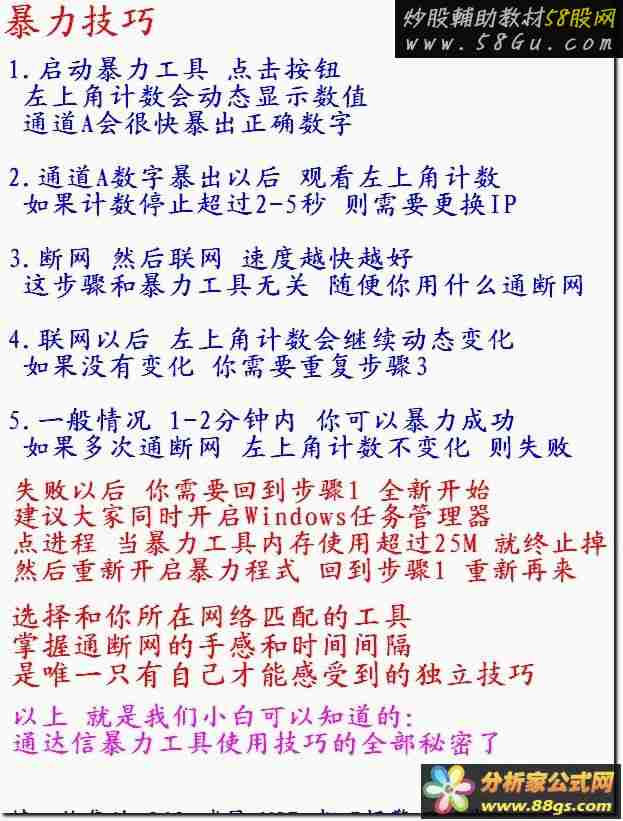 暴力技巧
炒股輔助教材58股网
www.58Gu.com
1.启动暴力工具 点击按钮
左上角计数会动态显示数值
通道A会很快暴出正确数字
2.通道A数字暴出以后 观看左上角计数
如果计数停止超过2-5秒 则需要更换IP
3.断网 然后联网 速度越快越好
这步骤和暴力工具无关 随便你用什么通断网
4.联网以后 左上角计数会继续动态变化
如果没有变化 你需要重复步骤3
5.一般情况 1-2分钟内 你可以暴力成功
如果多次通断网 左上角计数不变化 则失败
失败以后 你需要回到步骤1 全新开始
建议大家同时开启Windows任务管理器
点进程 当暴力工具内存使用超过25M 就终止掉
然后重新开启暴力程式 回到步骤1 重新再来
选择和你所在网络匹配的工具
掌握通断网的手感和时间间隔
是唯一只有自己才能感受到的独立技巧
以上 就是我们小白可以知道的:
通达信暴力工具使用技巧的全部秘密了
分析家公式网
www.88gs.com